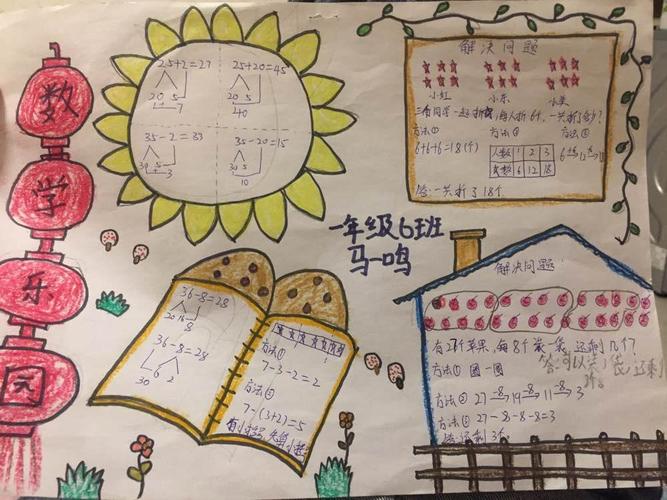 数
学
乐
园
25+2=27
20 5
7
25+20=45
20 5
40
35-2=33
30 5
3
35-20=15
30 5
10
解决问题
小红 小东 小美
一共折了多少?
方法① 方法② 方法③
6+6+6=18(个)
人数 1 2 3
个数 6 12 18
答:一共折了18个
一年级6班
马一鸣
36-8=28
20 16
8
36-8=28
30 6 2
方法①
7-3-2=2
方法②
7-(3+2)=5
解决问题:
有27个苹果,每8个装一袋,还剩几个?
方法① 圈一圈
方法② 27 -8→ 19 -8→ 11 -8→ 3
方法③ 27-8-8-8=3
答:还剩3个